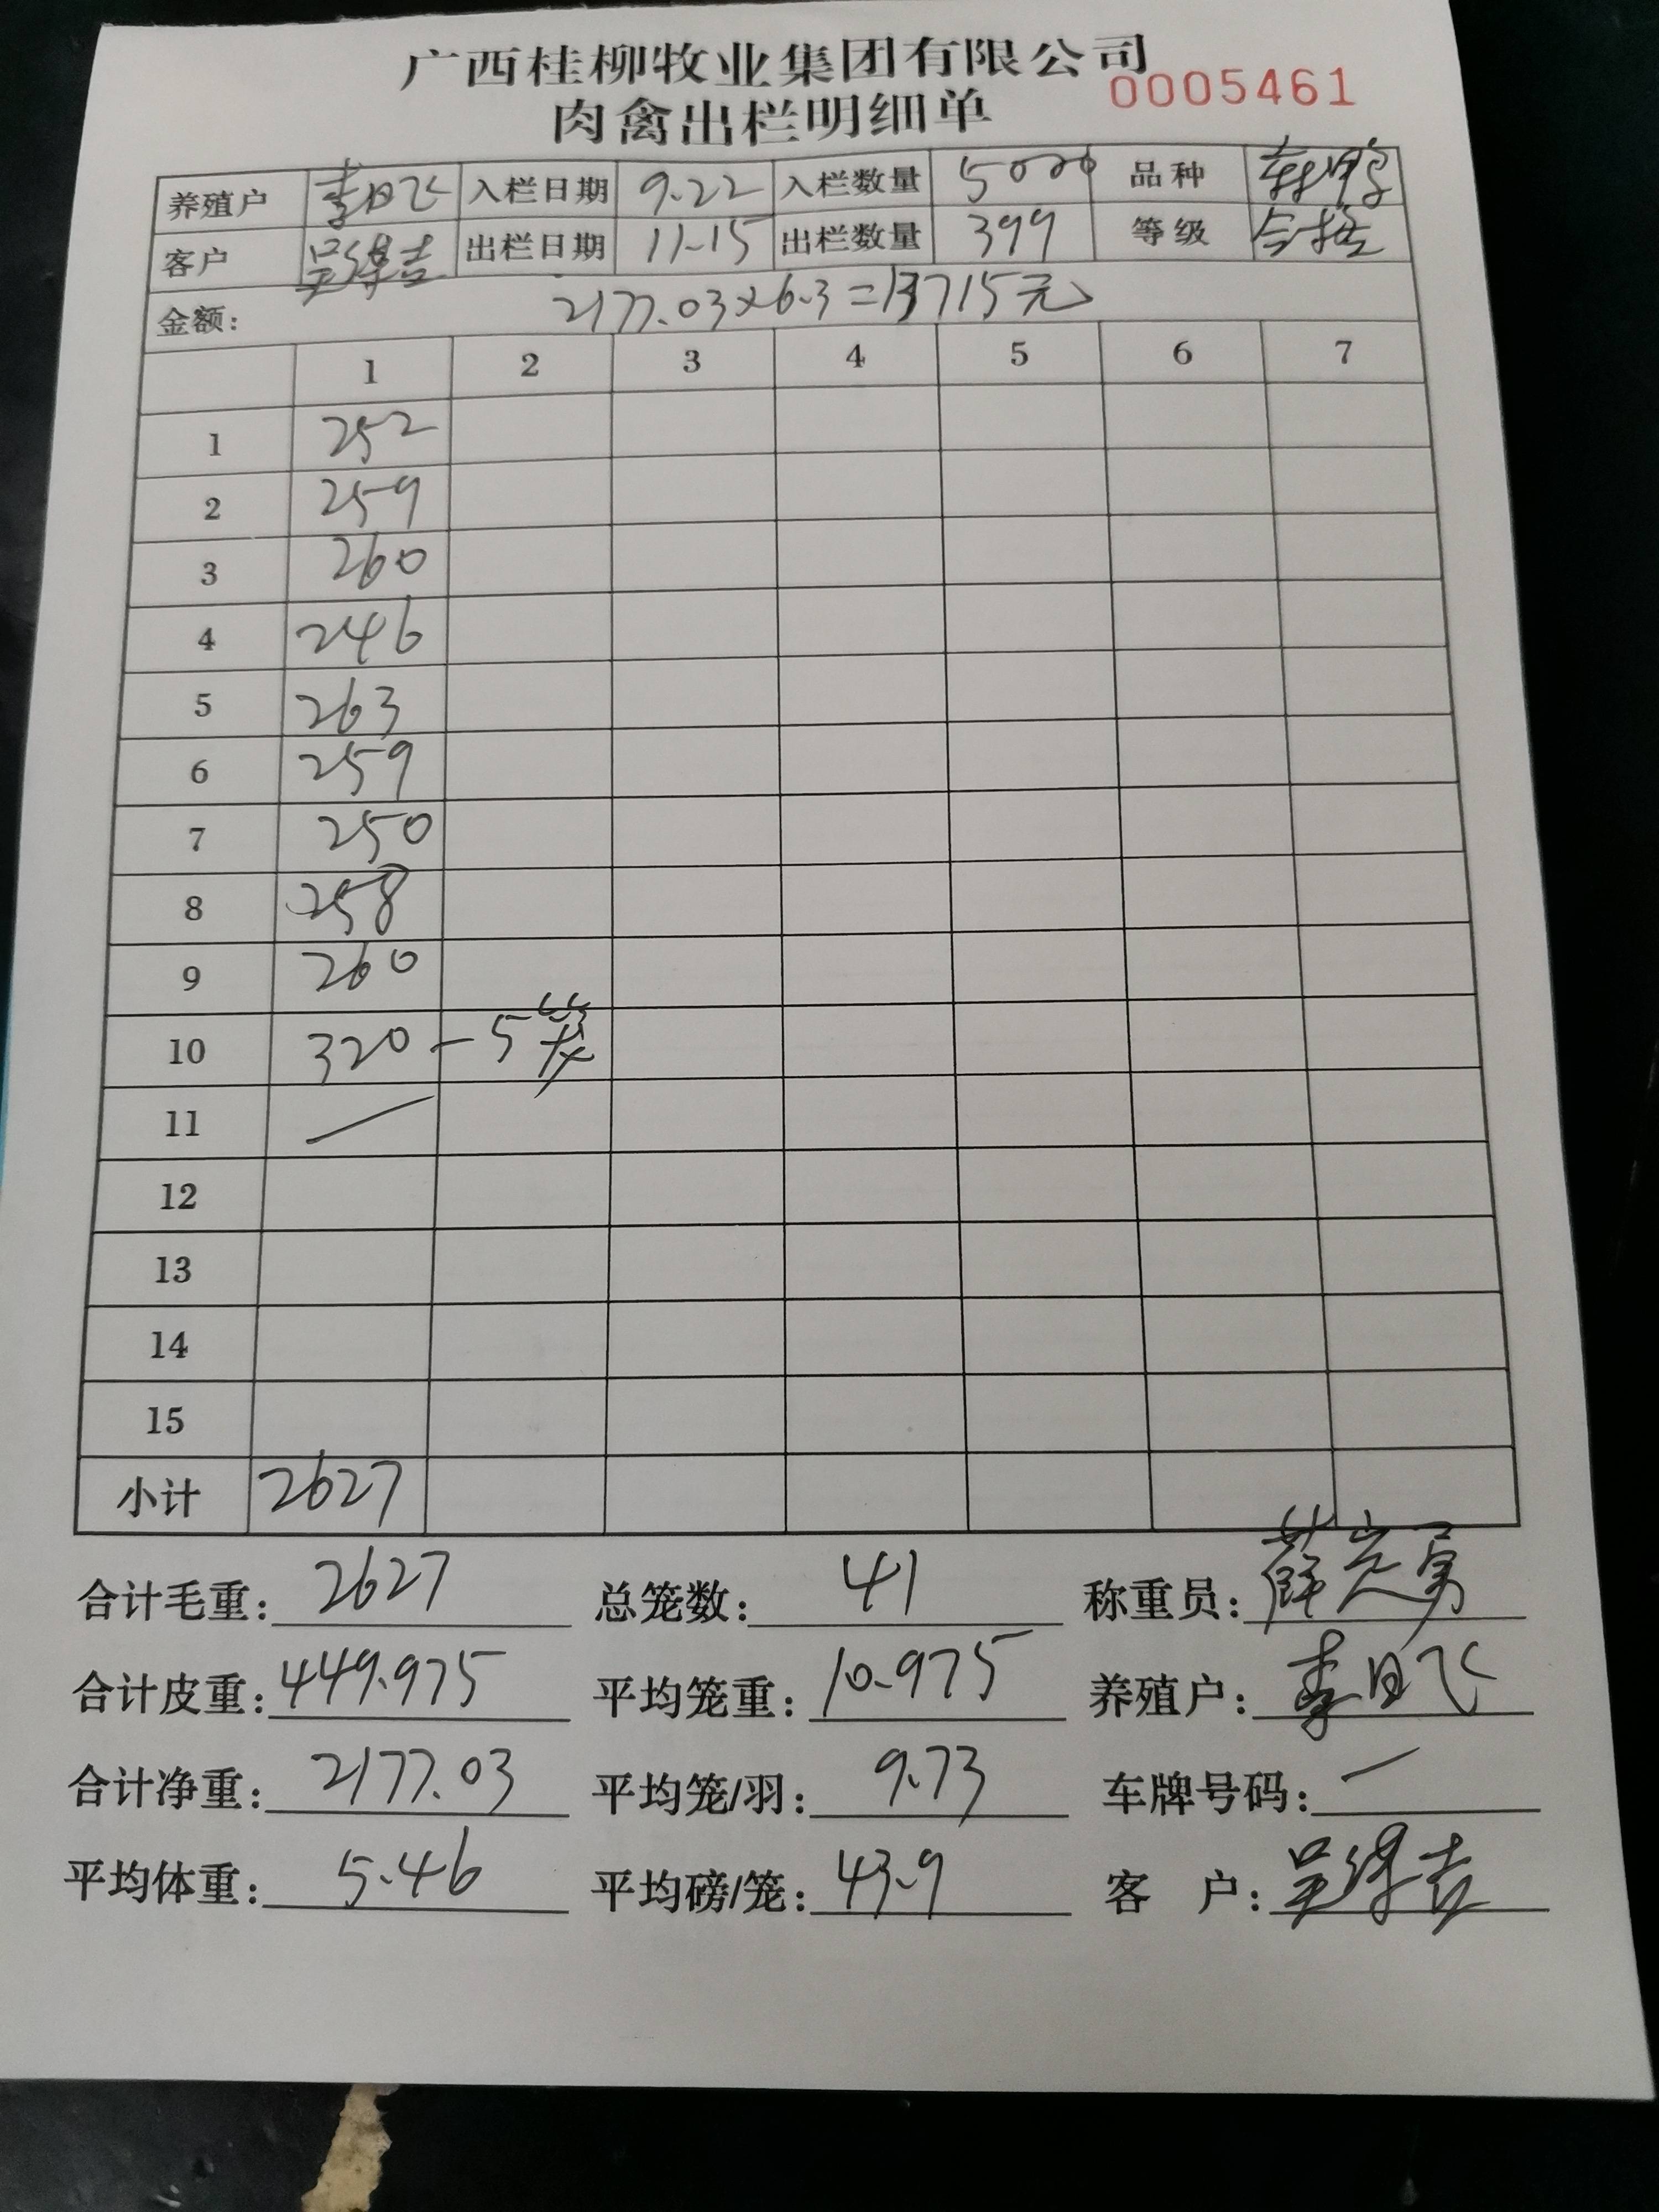 广西桂柳牧业集团有限公司
肉禽出栏明细单 0005461
养殖户 李日飞 入栏日期 9.22 入栏数量 5000 品种
客户 出栏日期 11-15 出栏数量 399 等级 合格
金额: 2177.03×6.3=13715元
1 2 3 4 5 6 7
1 252
2 259
3 260
4 246
5 263
6 259
7 250
8 258
9 260
10 320-5笼
11 /
12
13
14
15
小计 2627
合计毛重: 2627 总笼数: 41 称重员:
合计皮重: 449.975 平均笼重: 10.975 养殖户: 李日飞
合计净重: 2177.03 平均笼/羽: 9.73 车牌号码: /
平均体重: 5.46 平均磅/笼: 43.9 客 户: